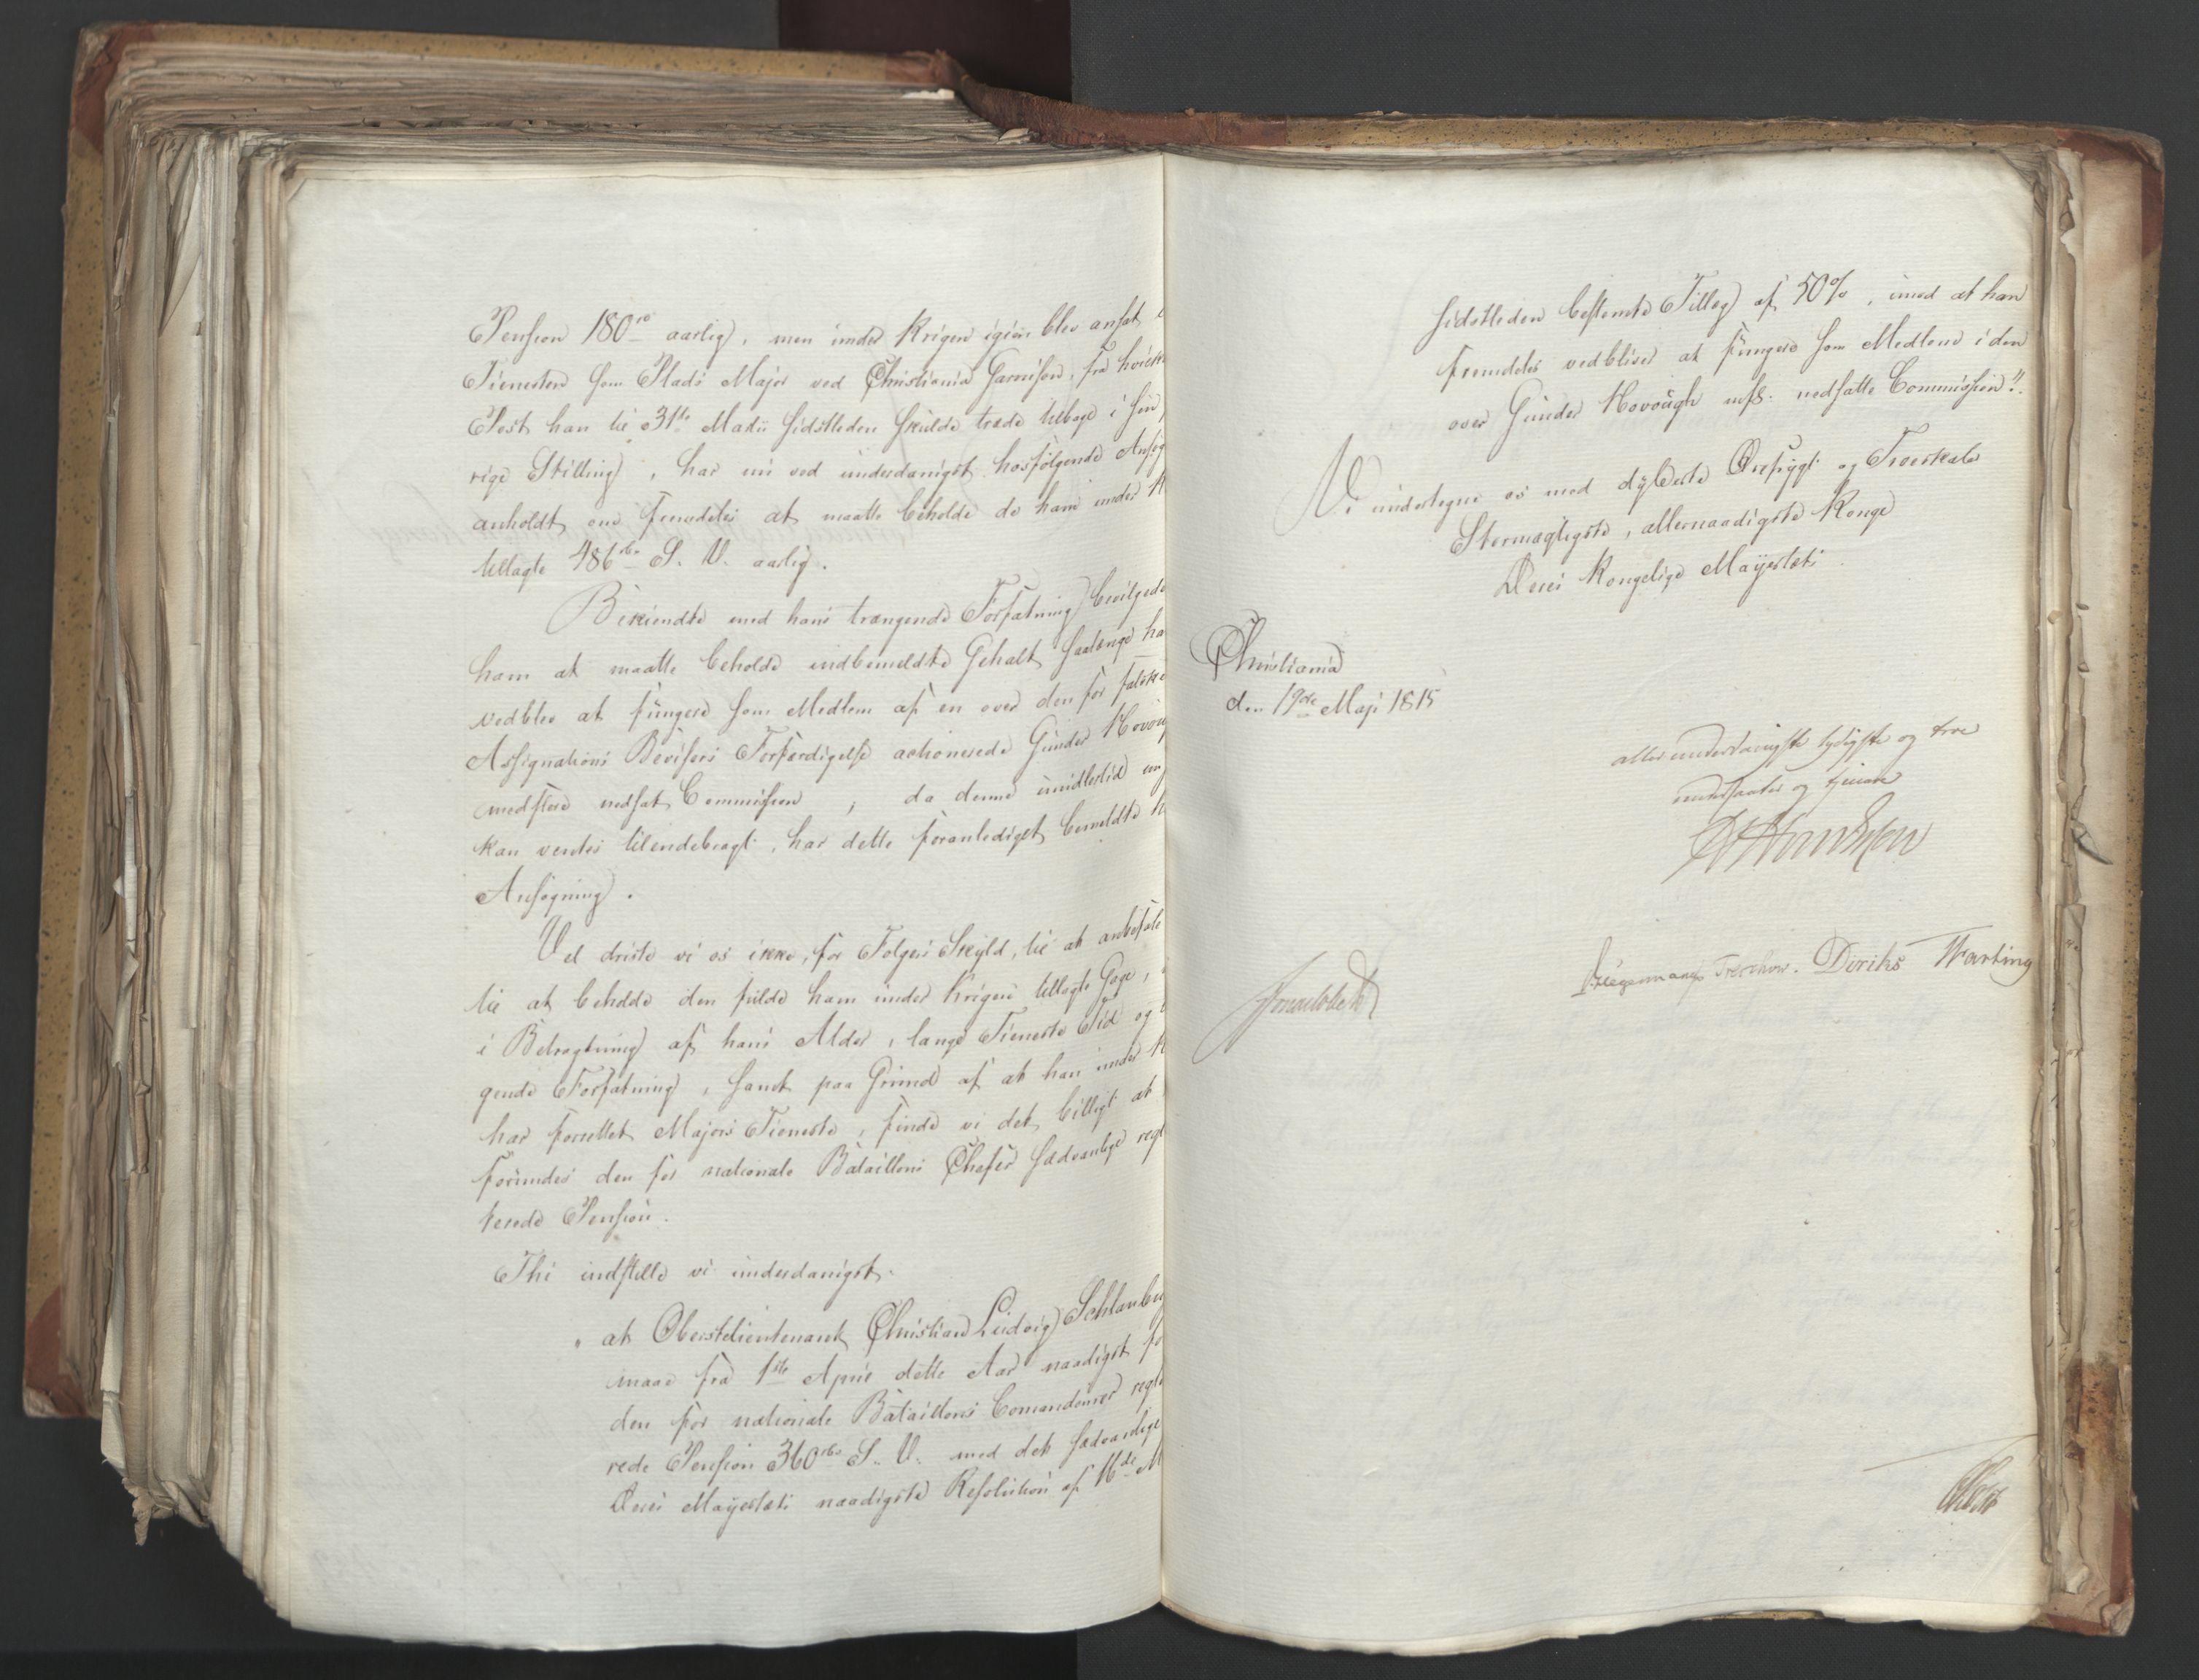 Pension 180 rd aarlig, men under Krigen igien blev ansat i
Tienesten som Plads Major ved Christiania Garnison, fra hvilken
Post han til 31te Martii sidstleden skulde træde tilbage i sin
rige Stilling, har nu ved underdanigst hosfølgende Ansøg
anholdt om fremdeles at maatte beholde de ham under K
tillagte 486 rbd S. V. aarlig.
Bekiendte med hans trængende Forfatning bevilgede
ham at maatte beholde indbemeldte Gehalt saalænge ha
vedblev at fungere som Medlem af en over den for falske
Assignations Bevisers Forfærdigelse actionerede Gunder Hovoug
medflere nedsat Commission; da denne imidlertid
kan ventes tilendebragt, har dette foranlediget bemeldte h
Ansøgning.
Vel driste vi os ikke, for Følgers Skyld, til at anbefale
til at beholde den fulde ham under Krigen tillagte Gage,
i Betragtning af hans Alder, lange Tieneste Tid og
gende Forfatning, samt paa Grund af at han under K
har forrettet Majors Tieneste, finde vi det billigt at
forundes den for nationale Bataillons Chefer sædvanlige regl
terede Pension.
Thi indstille vi underdanigst:
„ at Oberstlieutenant Christian Ludvig Schlanbu
maae fra 1ste April dette Aar naadigst fo
den for nationale Bataillons Comandeurer regle
rede Pension 360 rbd S. V. med det sædvanlige
Deres Mayestæts naadigste Resolution af 16de M
sidstleden bestemte Tillæg af 50%, imod at han
fremdeles vedbliver at fungere som Medlem i den
over Gunder Hovough mfl. nedsatte Commission".
Vi undertegne os med dybeste Ærefrygt og Troeskab
Stormægtigste, allernaadigste Konge
Deres Kongelige Mayestæts
Christiania
den 19de Maji 1815
allerunderdanigste lydigste og troe
undersaatter og tienere
Hegermann Treschow. Diriks Th Motzfeldt